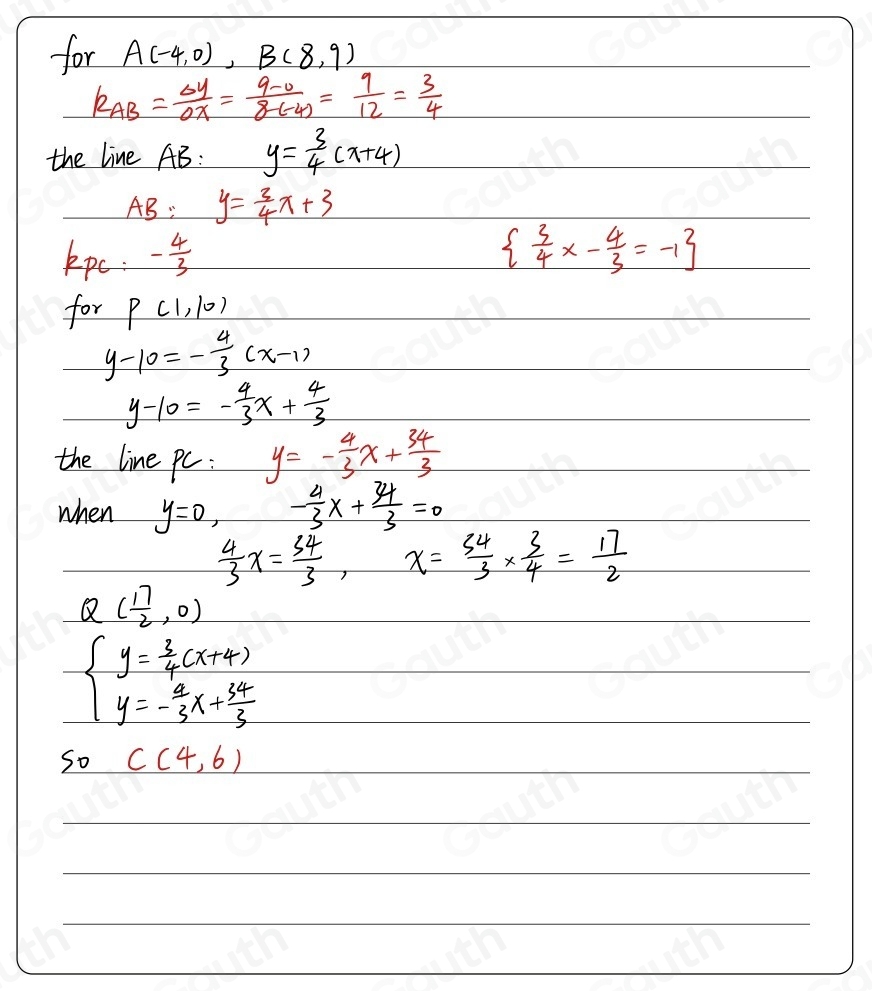 for A(-4,0), B(8,9)
k_AB = Δy/Δx = (9-0)/(8-(-4)) = 9/12 = 3/4
the line AB: y = 3/4 (x+4)
AB: y = 3/4 x + 3
k_PC: -4/3 { 3/4 × -4/3 = -1 }
for P(1,10)
y-10 = -4/3 (x-1)
y-10 = -4/3 x + 4/3
the line PC: y = -4/3 x + 34/3
when y=0, -4/3 x + 34/3 = 0
4/3 x = 34/3, x = 34/3 × 3/4 = 17/2
Q (17/2, 0)
{ y = 3/4 (x+4)
y = -4/3 x + 34/3
so C(4,6)
Gauth